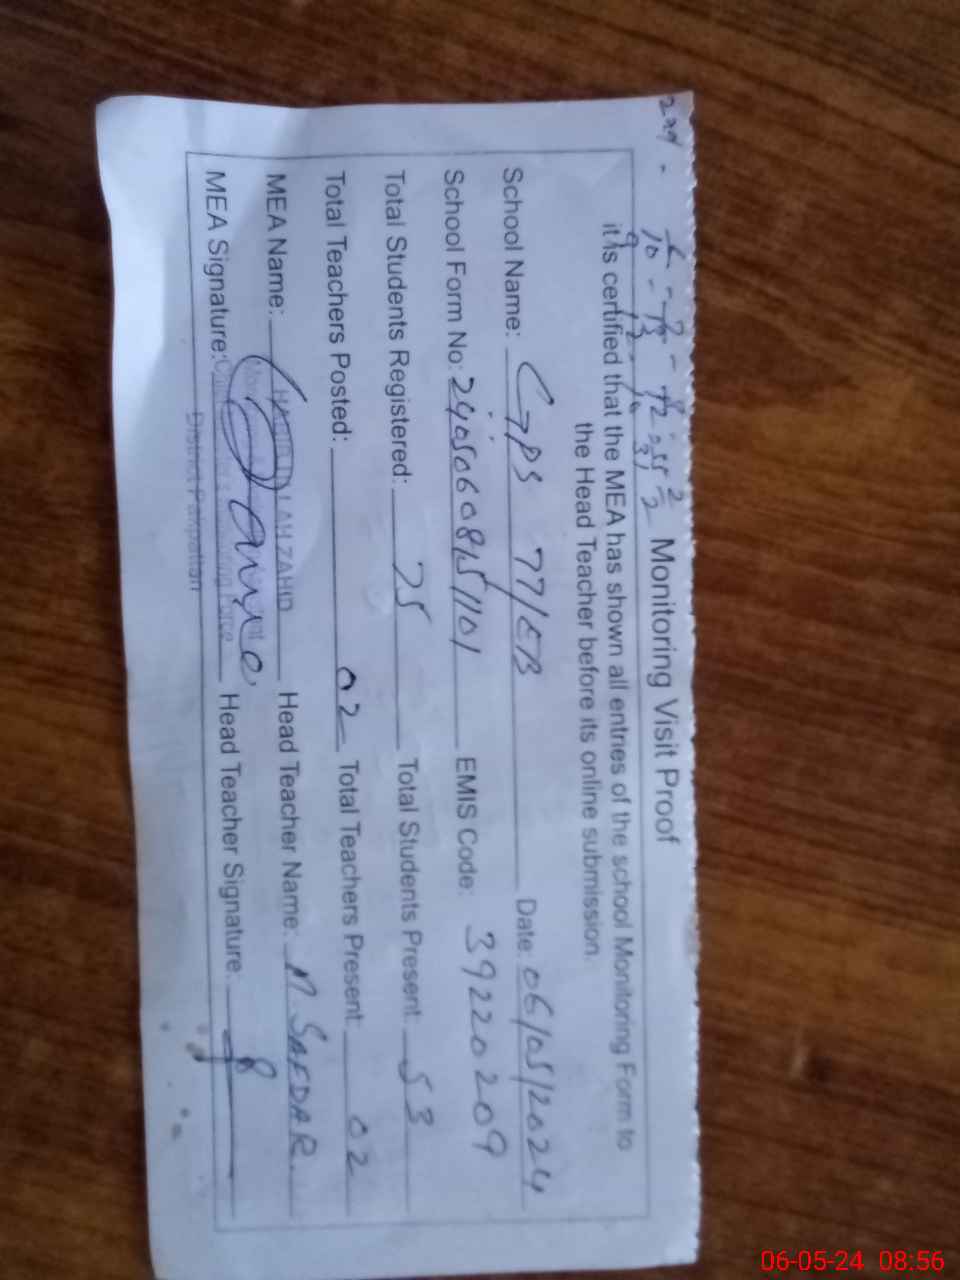 Monitoring Visit Proof
it is certified that the MEA has shown all entries of the school Monitoring Form to
the Head Teacher before its online submission.
School Name: GPS 77/EB Date: 06/05/2024
School Form No: EMIS Code: 39220209
Total Students Registered: 75 Total Students Present: 53
Total Teachers Posted: 02 Total Teachers Present: 02
MEA Name: ZAHID Head Teacher Name: M SAFDAR.
MEA Signature: Head Teacher Signature:
District Pakpattan
06-05-24 08:56